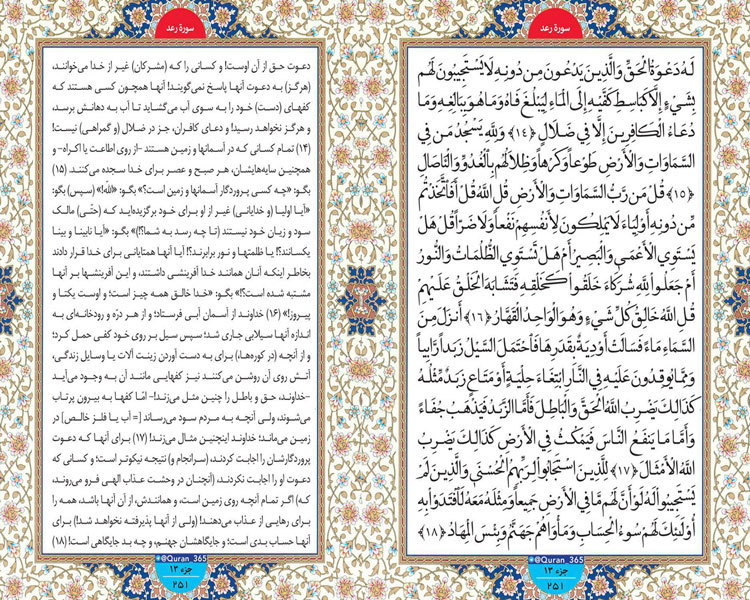 سورهٔ رعد
لَهُ دَعْوَةُ الْحَقِّ وَالَّذِينَ يَدْعُونَ مِن دُونِهِ لَا يَسْتَجِيبُونَ لَهُم
بِشَيْءٍ إِلَّا كَبَاسِطِ كَفَّيْهِ إِلَى الْمَاءِ لِيَبْلُغَ فَاهُ وَمَا هُوَ بِبَالِغِهِ وَمَا
دُعَاءُ الْكَافِرِينَ إِلَّا فِي ضَلَالٍ ﴿۱۴﴾ وَلِلَّهِ يَسْجُدُ مَن فِي
السَّمَاوَاتِ وَالْأَرْضِ طَوْعاً وَكَرْهاً وَظِلَالُهُم بِالْغُدُوِّ وَالْآصَالِ
﴿۱۵﴾ قُلْ مَن رَّبُّ السَّمَاوَاتِ وَالْأَرْضِ قُلِ اللَّهُ قُلْ أَفَاتَّخَذْتُم
مِّن دُونِهِ أَوْلِيَاءَ لَا يَمْلِكُونَ لِأَنفُسِهِمْ نَفْعاً وَلَا ضَرّاً قُلْ هَلْ
يَسْتَوِي الْأَعْمَى وَالْبَصِيرُ أَمْ هَلْ تَسْتَوِي الظُّلُمَاتُ وَالنُّورُ
أَمْ جَعَلُوا لِلَّهِ شُرَكَاءَ خَلَقُوا كَخَلْقِهِ فَتَشَابَهَ الْخَلْقُ عَلَيْهِمْ
قُلِ اللَّهُ خَالِقُ كُلِّ شَيْءٍ وَهُوَ الْوَاحِدُ الْقَهَّارُ ﴿۱۶﴾ أَنزَلَ مِنَ
السَّمَاءِ مَاءً فَسَالَتْ أَوْدِيَةٌ بِقَدَرِهَا فَاحْتَمَلَ السَّيْلُ زَبَداً رَّابِياً
وَمِمَّا يُوقِدُونَ عَلَيْهِ فِي النَّارِ ابْتِغَاءَ حِلْيَةٍ أَوْ مَتَاعٍ زَبَدٌ مِّثْلُهُ
كَذَلِكَ يَضْرِبُ اللَّهُ الْحَقَّ وَالْبَاطِلَ فَأَمَّا الزَّبَدُ فَيَذْهَبُ جُفَاءً
وَأَمَّا مَا يَنفَعُ النَّاسَ فَيَمْكُثُ فِي الْأَرْضِ كَذَلِكَ يَضْرِبُ
اللَّهُ الْأَمْثَالَ ﴿۱۷﴾ لِلَّذِينَ اسْتَجَابُوا لِرَبِّهِمُ الْحُسْنَى وَالَّذِينَ لَمْ
يَسْتَجِيبُوا لَهُ لَوْ أَنَّ لَهُم مَّا فِي الْأَرْضِ جَمِيعاً وَمِثْلَهُ مَعَهُ لَافْتَدَوْا بِهِ
أُوْلَئِكَ لَهُمْ سُوءُ الْحِسَابِ وَمَأْوَاهُمْ جَهَنَّمُ وَبِئْسَ الْمِهَادُ ﴿۱۸﴾
@Quran_365
جزء ۱۳
۲۵۱
سورهٔ رعد
دعوت حق از آن اوست! و کسانی را که (مشرکان) غیر از خدا می‌خوانند،
(هرگز) به دعوت آنها پاسخ نمی‌گویند! آنها همچون کسی هستند که
کفهای (دست) خود را به سوی آب می‌گشاید تا آب به دهانش برسد،
و هرگز نخواهد رسید! و دعای کافران، جز در ضلال (و گمراهی) نیست!
(۱۴) تمام کسانی که در آسمانها و زمین هستند -از روی اطاعت یا اکراه- و
همچنین سایه‌هایشان، هر صبح و عصر برای خدا سجده می‌کنند (۱۵)
بگو: «چه کسی پروردگار آسمانها و زمین است؟» بگو: «الله!» (سپس) بگو:
«آیا اولیا (و خدایانی) غیر از او برای خود برگزیده‌اید که (حتّی) مالک
سود و زیان خود نیستند (تا چه رسد به شما؟!)» بگو: «آیا نابینا و بینا
یکسانند؟! یا ظلمتها و نور برابرند؟! آیا آنها همتایانی برای خدا قرار دادند
بخاطر اینکه آنان همانند خدا آفرینشی داشتند، و این آفرینشها بر آنها
مشتبه شده است؟!» بگو: «خدا خالق همه چیز است؛ و اوست یکتا و
پیروز!» (۱۶) خداوند از آسمان آبی فرستاد؛ و از هر درّه و رودخانه‌ای به
اندازه آنها سیلابی جاری شد؛ سپس سیل بر روی خود کفی حمل کرد؛
و از آنچه (در کوره‌ها،) برای به دست آوردن زینت آلات یا وسایل زندگی،
آتش روی آن روشن می‌کنند نیز کفهایی مانند آن به وجود می‌آید
-خداوند، حق و باطل را چنین مثل می‌زند!- امّا کفها به بیرون پرتاب
می‌شوند، ولی آنچه به مردم سود می‌رساند [= آب یا فلز خالص] در
زمین می‌ماند؛ خداوند اینچنین مثال می‌زند! (۱۷) برای آنها که دعوت
پروردگارشان را اجابت کردند، (سرانجام و) نتیجه نیکوتر است؛ و کسانی که
دعوت او را اجابت نکردند، (آنچنان در وحشت عذاب الهی فرو می‌روند،
که) اگر تمام آنچه روی زمین است، و همانندش، از آن آنها باشد، همه را
برای رهایی از عذاب می‌دهند! (ولی از آنها پذیرفته نخواهد شد!) برای
آنها حساب بدی است؛ و جایگاهشان جهنم، و چه بد جایگاهی است! (۱۸)
@Quran_365
جزء ۱۳
۲۵۱